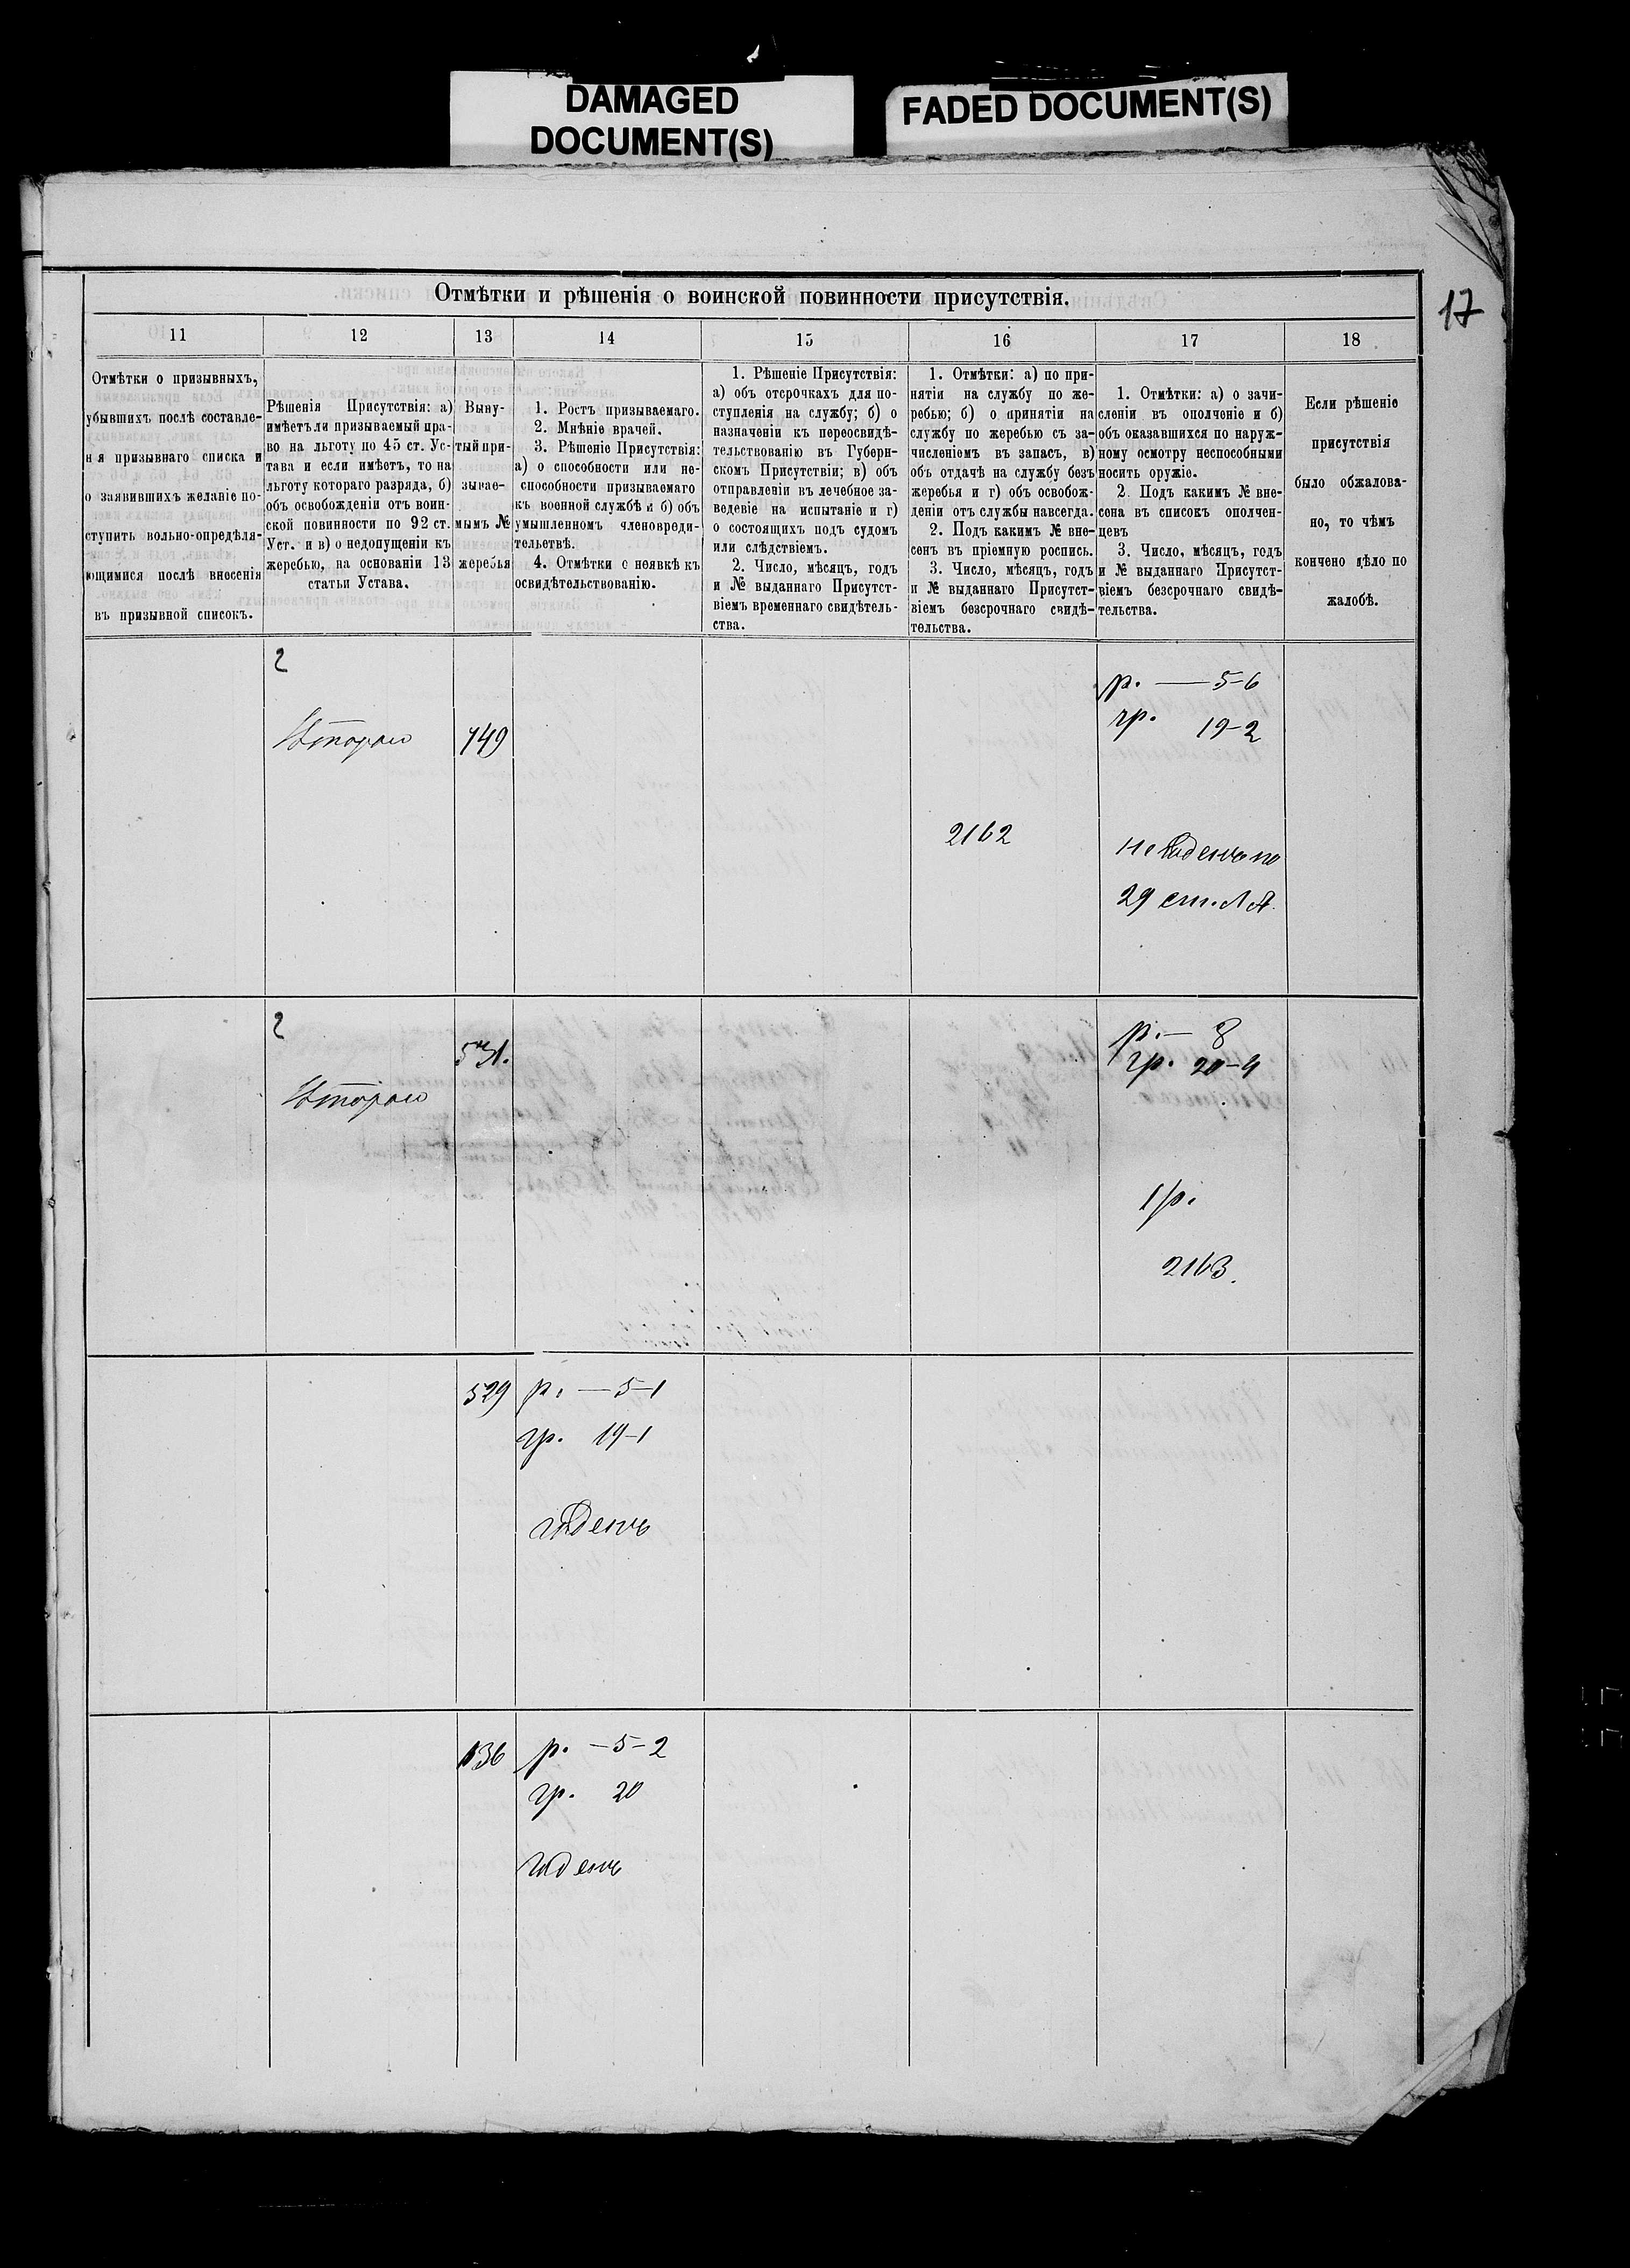 DAMAGED
DOCUMENT(S)
FADED DOCUMENT(S)
17
Отмѣтки и рѣшенія о воинской повинности присутствія.
11 12 13 14 15 16 17 18
Отмѣтки о призывныхъ,
убывшихъ послѣ составле-
н я призывнаго списка и
о заявившихъ желаніе по-
ступить вольно-опредѣля-
ющимися послѣ внесенія
въ призывной списокъ.
Рѣшенія Присутствія: а)
имѣетъ ли призываемый пра-
во на льготу по 45 ст. Ус-
тава и если имѣетъ, то на
льготу котораго разряда, б)
объ освобожденіи отъ воин-
ской повинности по 92 ст.
Уст. и в) о недопущеніи къ
жеребью, на основаніи 13
статьи Устава.
Выну-
тый при-
зывае-
мымъ №
жеребья
1. Ростъ призываемаго.
2. Мнѣніе врачей.
3. Рѣшеніе Присутствія:
а) о способности или не-
способности призываемаго
къ военной службѣ и б) объ
умышленномъ членовреди-
тельствѣ.
4. Отмѣтки о неявкѣ къ
освидѣтельствованію.
1. Рѣшеніе Присутствія:
а) объ отсрочкахъ для по-
ступленія на службу; б) о
назначеніи къ переосвидѣ-
тельствованію въ Губерн-
скомъ Присутствіи; в) объ
отправленіи въ лечебное за-
веденіе на испытаніе и г)
о состоящихъ подъ судомъ
или слѣдствіемъ.
2. Число, мѣсяцъ, годъ
и № выданнаго Присутст-
віемъ временнаго свидѣтель-
ства.
1. Отмѣтки: а) по при-
нятіи на службу по же-
ребью; б) о принятіи на
службу по жеребью съ за-
численіемъ въ запасъ, в)
объ отдачѣ на службу безъ
жеребья и г) объ освобож-
деніи отъ службы навсегда.
2. Подъ какимъ № вне-
сенъ въ пріемную роспись.
3. Число, мѣсяцъ, годъ
и № выданнаго Присутст-
віемъ безсрочнаго свидѣ-
тельства.
1. Отмѣтки: а) о зачи-
сленіи въ ополченіе и б)
объ оказавшихся по наруж-
ному осмотру неспособными
носить оружіе.
2. Подъ какимъ № вне-
сена въ списокъ ополчен-
цевъ
3. Число, мѣсяцъ, годъ
и № выданнаго Присутст-
віемъ безсрочнаго свидѣ-
тельства.
Если рѣшеніе
присутствія
было обжалова-
но, то чѣмъ
кончено дѣло по
жалобѣ.
2
Втораго
749
2162
р. — 5-6
гр. 19-2
не годенъ по
29 ст. ЛА.
2
Втораго
531.
р. — 8
гр. 20-9
1 р.
2163.
529
р. — 5-1
гр. 19-1
годенъ
136
р. — 5-2
гр. 20
годенъ